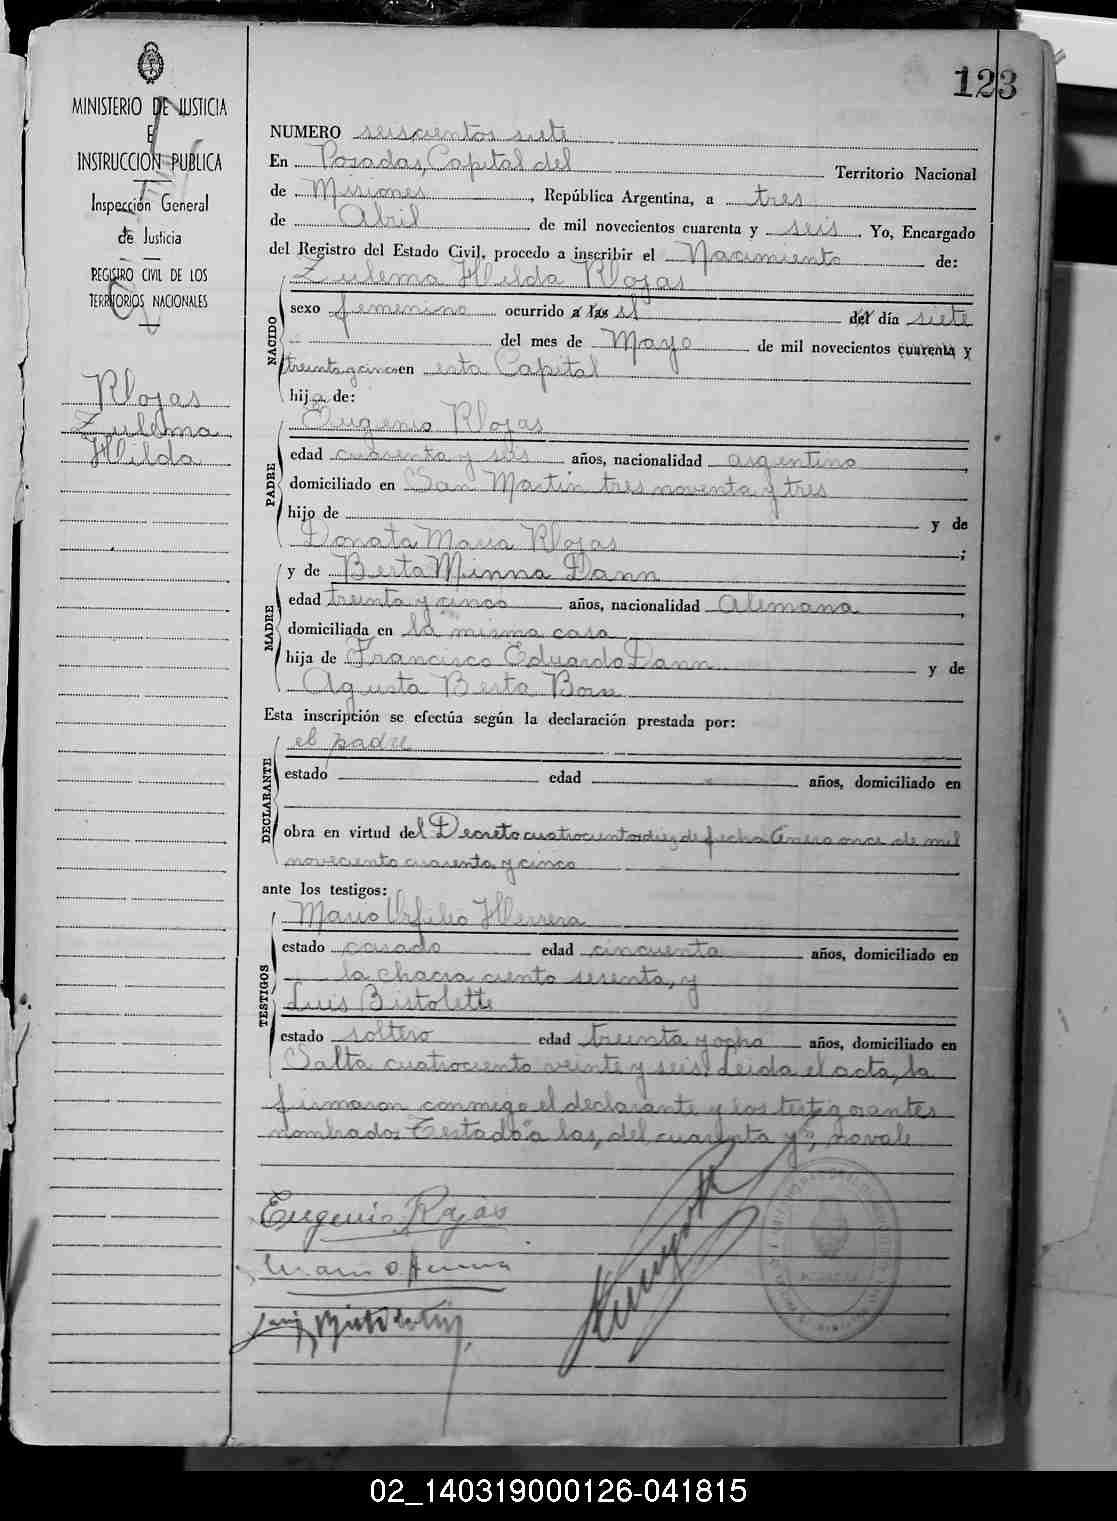 123
MINISTERIO DE JUSTICIA
E
INSTRUCCIÓN PUBLICA
Inspección General
de Justicia
REGISTRO CIVIL DE LOS
TERRITORIOS NACIONALES
Rojas
Zulema
Hilda
NUMERO seiscientos siete
En Posadas, Capital del Territorio Nacional
de Misiones, República Argentina, a tres
de Abril de mil novecientos cuarenta y seis. Yo, Encargado
del Registro del Estado Civil, procedo a inscribir el Nacimiento de:
NACIDO
Zulema Hilda Rojas
sexo femenino ocurrido a las el del día siete
del mes de Mayo de mil novecientos cuarenta y
treinta y cinco en esta Capital
hija de:
PADRE
Eugenio Rojas
edad cuarenta y seis años, nacionalidad argentino,
domiciliado en San Martin tres noventa y tres
hijo de y de
Donata Maria Rojas;
MADRE
y de Berta Minna Dann
edad treinta y cinco años, nacionalidad Alemana,
domiciliada en la misma casa
hija de Francisco Eduardo Dann y de
Agusta Berta
Esta inscripción se efectúa según la declaración prestada por:
DECLARANTE
el padre
estado edad años, domiciliado en
obra en virtud del Decreto cuatrocientos diez de fecha Enero once de mil
noveciento cuarenta y cinco
ante los testigos:
TESTIGOS
Mario Herrera
estado casado edad cincuenta años, domiciliado en
la chacra ciento sesenta, y
Luis Bistolette
estado soltero edad treinta y ocho años, domiciliado en
Salta cuatrociento veinte y seis. Leida el acta, la
firmaron conmigo el declarante y los testigos antes
nombrados Testado "a las, del cuarenta y", no vale
Eugenio Rojas
02_140319000126-041815